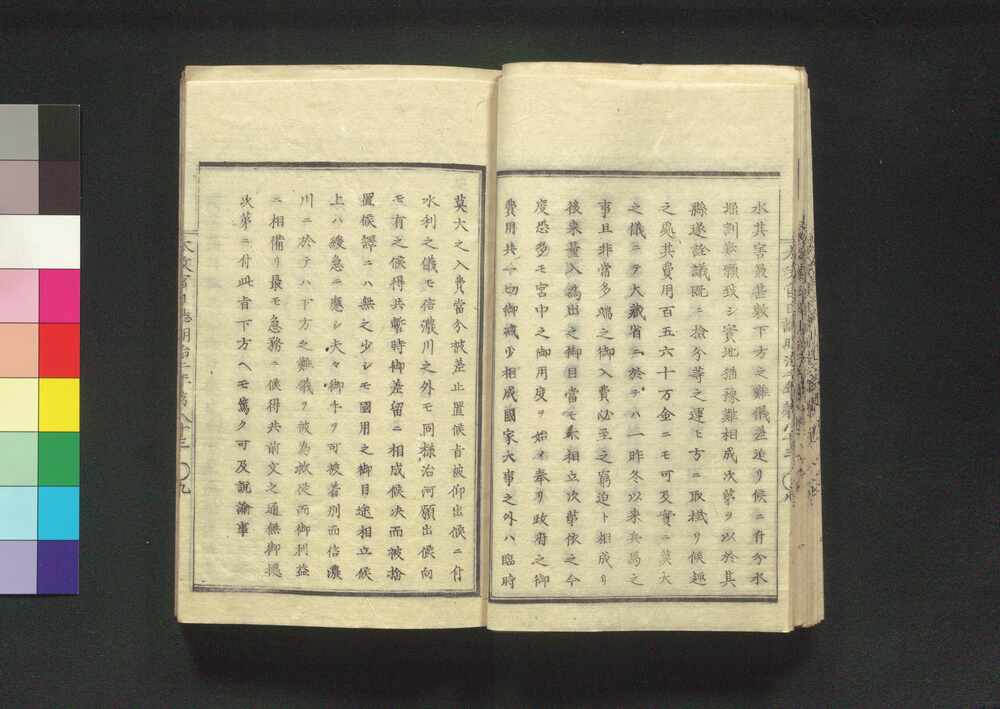 水其害最甚敷下方之難儀差迫リ候ニ付分水
堀割歎願致シ實地猶豫難相成次第ヲ以於其
縣遂詮議既ニ檢分等之運ヒ方ニ取掛リ候趣
之處其費用百五六十万金ニモ可及實ニ莫大
之儀ニテ大藏省ニ於テハ一昨冬以来兵馬之
事且非常多端之御入費必至之窮迫ト相成リ
後来量入為出之御目當モ未相立次第依之今
度恐多モ宮中之御用度ヲ始メ奉リ政府之御
費用共一切御减少相成國家大事之外ハ臨時
莫大之入費當分被差止置候旨被仰出候ニ付
水利之儀モ信濃川之外モ同様治河願出候向
モ有之候得共暫時御差留ニ相成候決而被捨
置候譯ニハ無之少シモ國用之御目途相立候
上ハ緩急ニ應シ夫々御手ヲ可被着別而信濃
川ニ於テハ下方之難儀ヲ被為救從而御利益
ニ相備リ最モ急務ニ候得共前文之通無御據
次第ニ付此旨下方ヘモ篤ク可及說諭事
太政官日誌明治二年第八十三 〇九